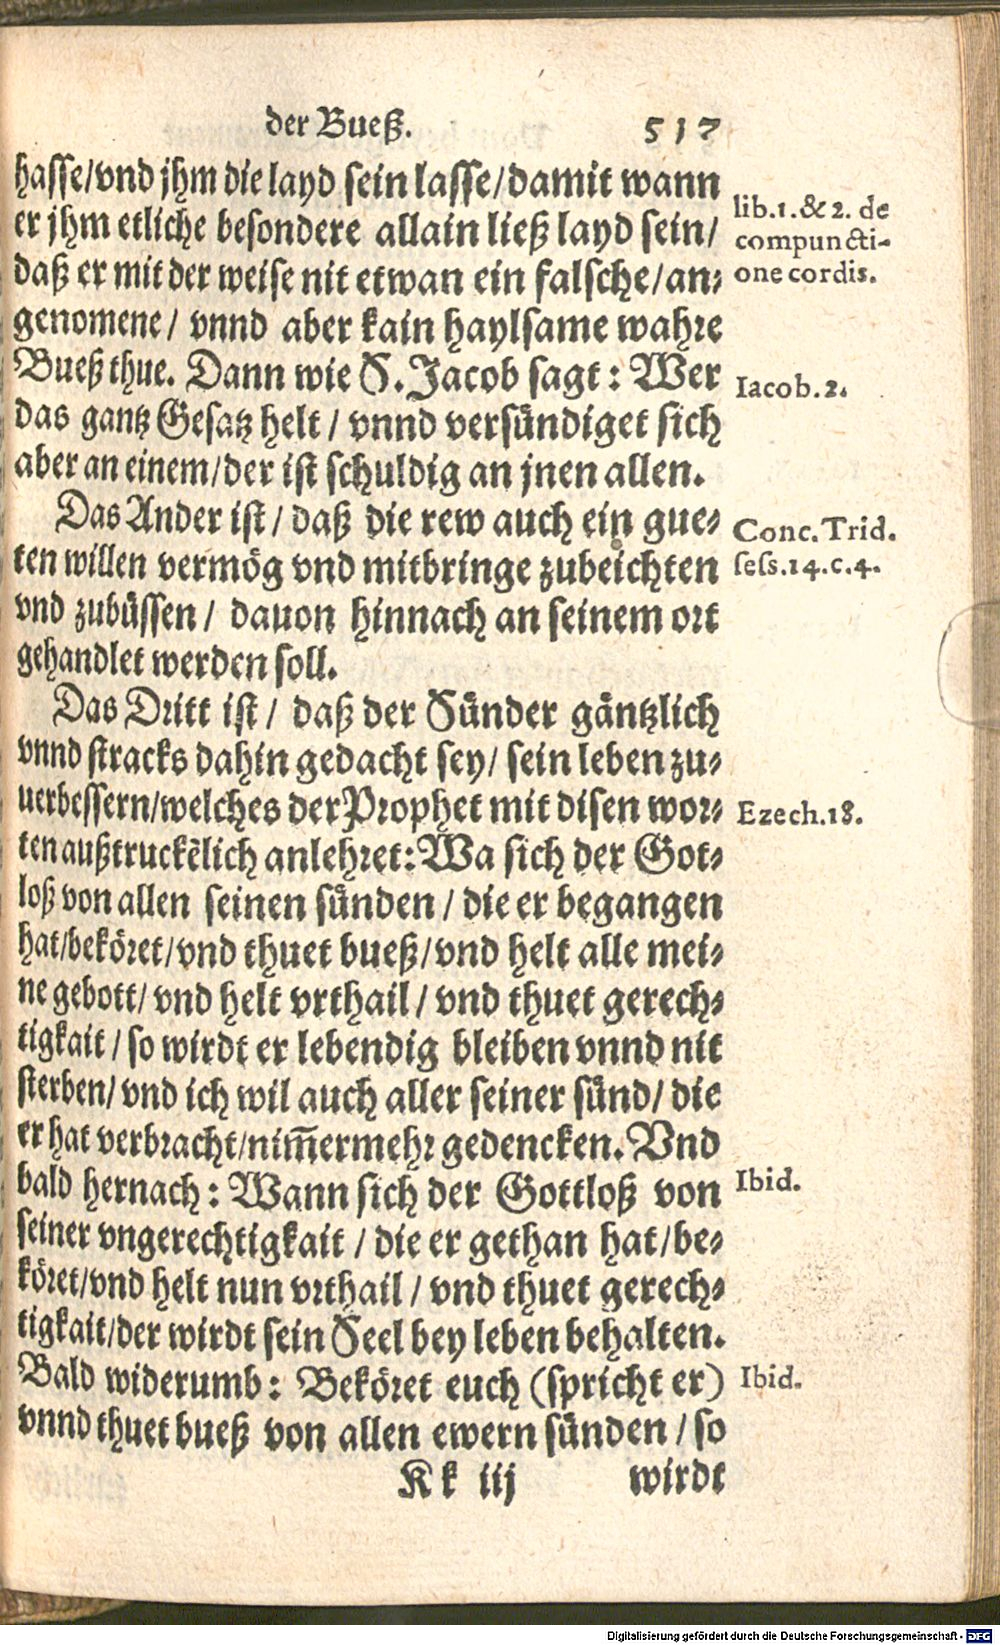 der Bueß. 517
hasse/vnd jhm die layd sein lasse/damit wann
er jhm etliche besondere allain ließ layd sein/
daß er mit der weise nit etwan ein falsche/an-
genomene/ vnnd aber kain haylsame wahre
Bueß thue. Dann wie S. Jacob sagt: Wer
das gantz Gesatz helt / vnnd versündiget sich
aber an einem/der ist schuldig an jnen allen.
Das Ander ist / daß die rew auch ein gue-
ten willen vermög vnd mitbringe zubeichten
vnd zubüssen / dauon hinnach an seinem ort
gehandlet werden soll.
Das Dritt ist / daß der Sünder gäntzlich
vnnd stracks dahin gedacht sey/ sein leben zu-
uerbessern/welches der Prophet mit disen wor-
ten außtruckẽlich anlehret: Wa sich der Got-
loß von allen seinen sünden / die er begangen
hat/beköret/vnd thuet bueß/vnd helt alle mei-
ne gebott/ vnd helt vrthail / vnd thuet gerech-
tigkait / so wirdt er lebendig bleiben vnnd nit
sterben/ vnd ich wil auch aller seiner sünd/ die
er hat verbracht/nim̃ermehr gedencken. Vnd
bald hernach: Wann sich der Gottloß von
seiner vngerechtigkait / die er gethan hat/be-
köret/vnd helt nun vrthail / vnd thuet gerech-
tigkait/der wirdt sein Seel bey leben behalten.
Bald widerumb: Beköret euch (spricht er)
vnnd thuet bueß von allen ewern sünden / so
Kk iij wirdt
lib.1.&2. de
compuncti-
one cordis.
Iacob.2.
Conc.Trid.
sess.14.c.4.
Ezech.18.
Ibid.
Ibid.
Digitalisierung gefördert durch die Deutsche Forschungsgemeinschaft - DFG